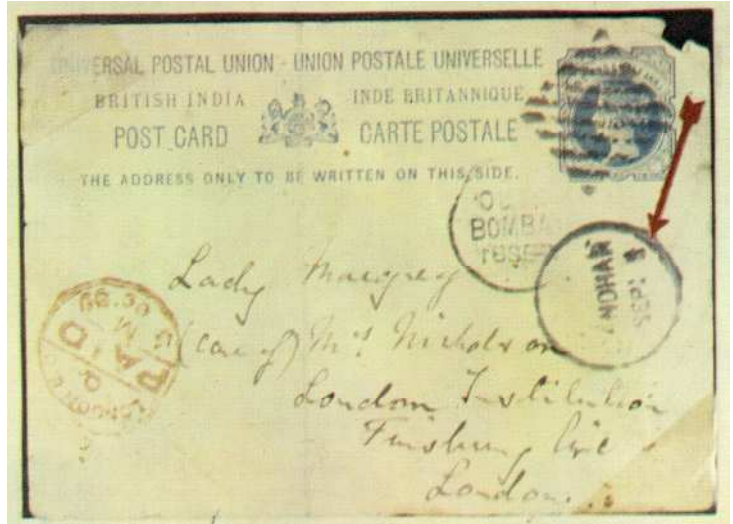 UNIVERSAL POSTAL UNION - UNION POSTALE UNIVERSELLE
BRITISH INDIA INDE BRITANNIQUE
POST CARD CARTE POSTALE
THE ADDRESS ONLY TO BE WRITTEN ON THIS SIDE.
BOMBA
SEP
PAID
Lady
(care of) Mrs Nicholson
London Institution
Finsbury
London.